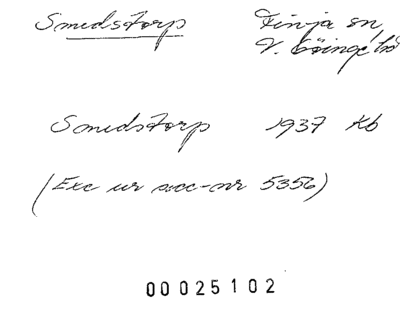 Smedstorp Finja sn,
V. Göinge hd
Smedstorp 1937 Kb
(Exc ur acc-nr 5356)
00025102